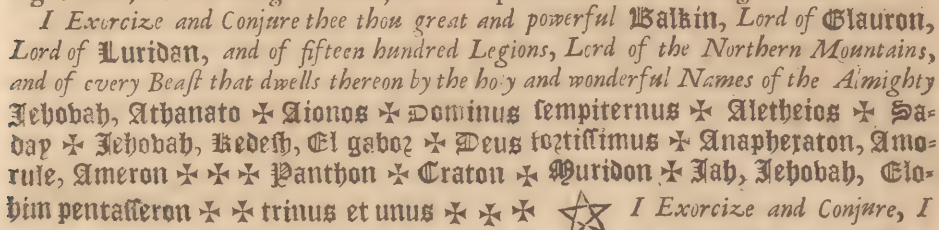 I Exorcize and Conjure thee thou great and powerful Balkin, Lord of Glauron,
Lord of Luridan, and of fifteen hundred Legions, Lord of the Northern Mountains,
and of every Beaſt that dwells thereon by the holy and wonderful Names of the Almighty
Jehovah, Athanato ✠ Aionos ✠ Dominus ſempiternus ✠ Aletheios ✠ Sa=
day ✠ Jehovah, Kedeſh, El gabor ✠ Deus fortiſſimus ✠ Anapheraton, Amo=
rule, Ameron ✠ ✠ ✠ Panthon ✠ Craton ✠ Muridon ✠ Jah, Jehovah, Elo=
him pentaſſeron ✠ ✠ trinus et unus ✠ ✠ ✠ ⛤ I Exorcize and Conjure, I